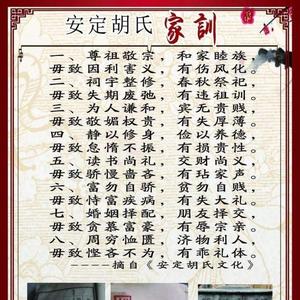 安定胡氏家訓
一、尊祖敬宗，和家睦族。
毋致因利害义，有伤风化。
二、祠宇整修，春秋祭祀，
毋致失期废弛，有违祖训。
三、为人谦和，宾无贵贱，
毋致敬媚权贵，有失厚薄。
四、静以修身，俭以养德，
毋致怠惰不振，有损贵性。
五、读书尚礼，交财尚义，
毋致骄慢啬吝，有玷家声。
六、富勿自骄，贫勿自贱，
毋致恃富疾病，有失大礼。
七、婚姻择配，朋友择交，
毋致贪慕富豪，有辱宗亲。
八、周穷恤匮，济物利人，
毋致悭客不为，有乖礼体。
----摘自《安定胡氏文化》